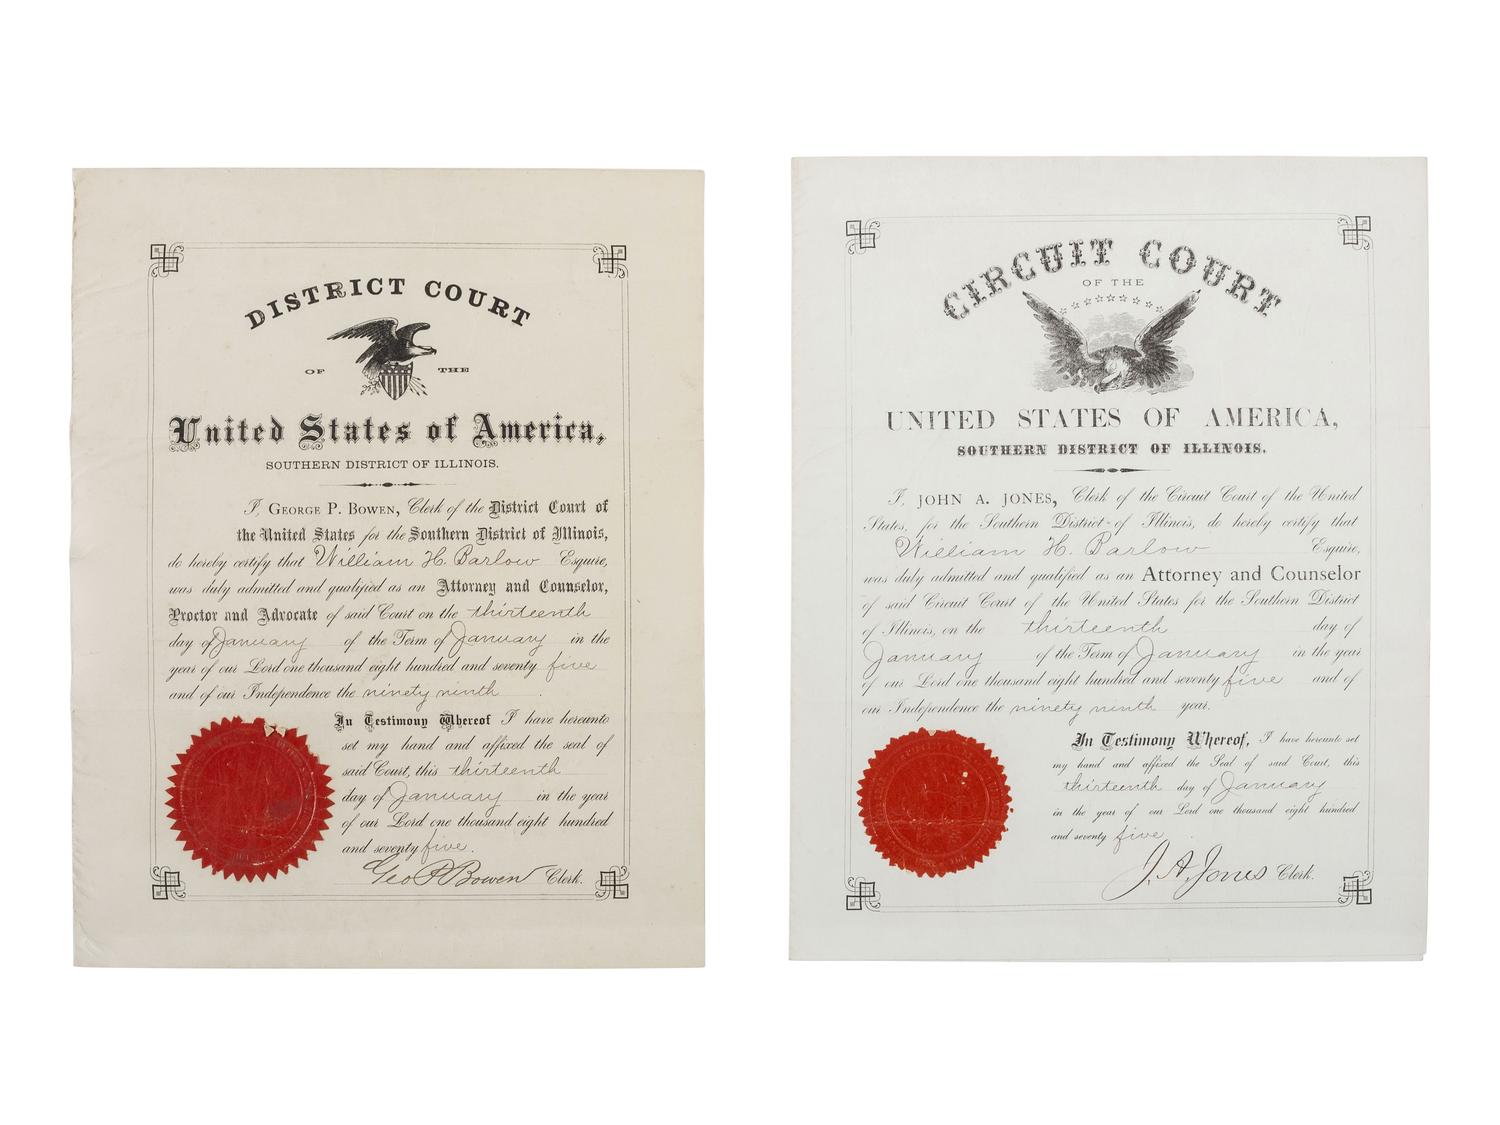 DISTRICT COURT
OF THE
United States of America,
SOUTHERN DISTRICT OF ILLINOIS.
I, GEORGE P. BOWEN, Clerk of the District Court of
the United States for the Southern District of Illinois,
do hereby certify that William H. Barlow Esquire,
was duly admitted and qualified as an Attorney and Counselor,
Proctor and Advocate of said Court on the thirteenth
day of January of the Term of January in the
year of our Lord one thousand eight hundred and seventy five
and of our Independence the ninety ninth .
In Testimony Whereof I have hereunto
set my hand and affixed the seal of
said Court, this thirteenth
day of January in the year
of our Lord one thousand eight hundred
and seventy five.
Geo P Bowen Clerk.
CIRCUIT COURT
OF THE
UNITED STATES OF AMERICA,
SOUTHERN DISTRICT OF ILLINOIS.
I, JOHN A. JONES, Clerk of the Circuit Court of the United
States, for the Southern District of Illinois, do hereby certify that
William H. Barlow Esquire,
was duly admitted and qualified as an Attorney and Counselor
of said Circuit Court of the United States for the Southern District
of Illinois, on the thirteenth day of
January of the Term of January in the year
of our Lord one thousand eight hundred and seventy five and of
our Independence the ninety ninth year.
In Testimony Whereof, I have hereunto set
my hand and affixed the Seal of said Court, this
thirteenth day of January
in the year of our Lord one thousand eight hundred
and seventy five .
J. A. Jones Clerk.